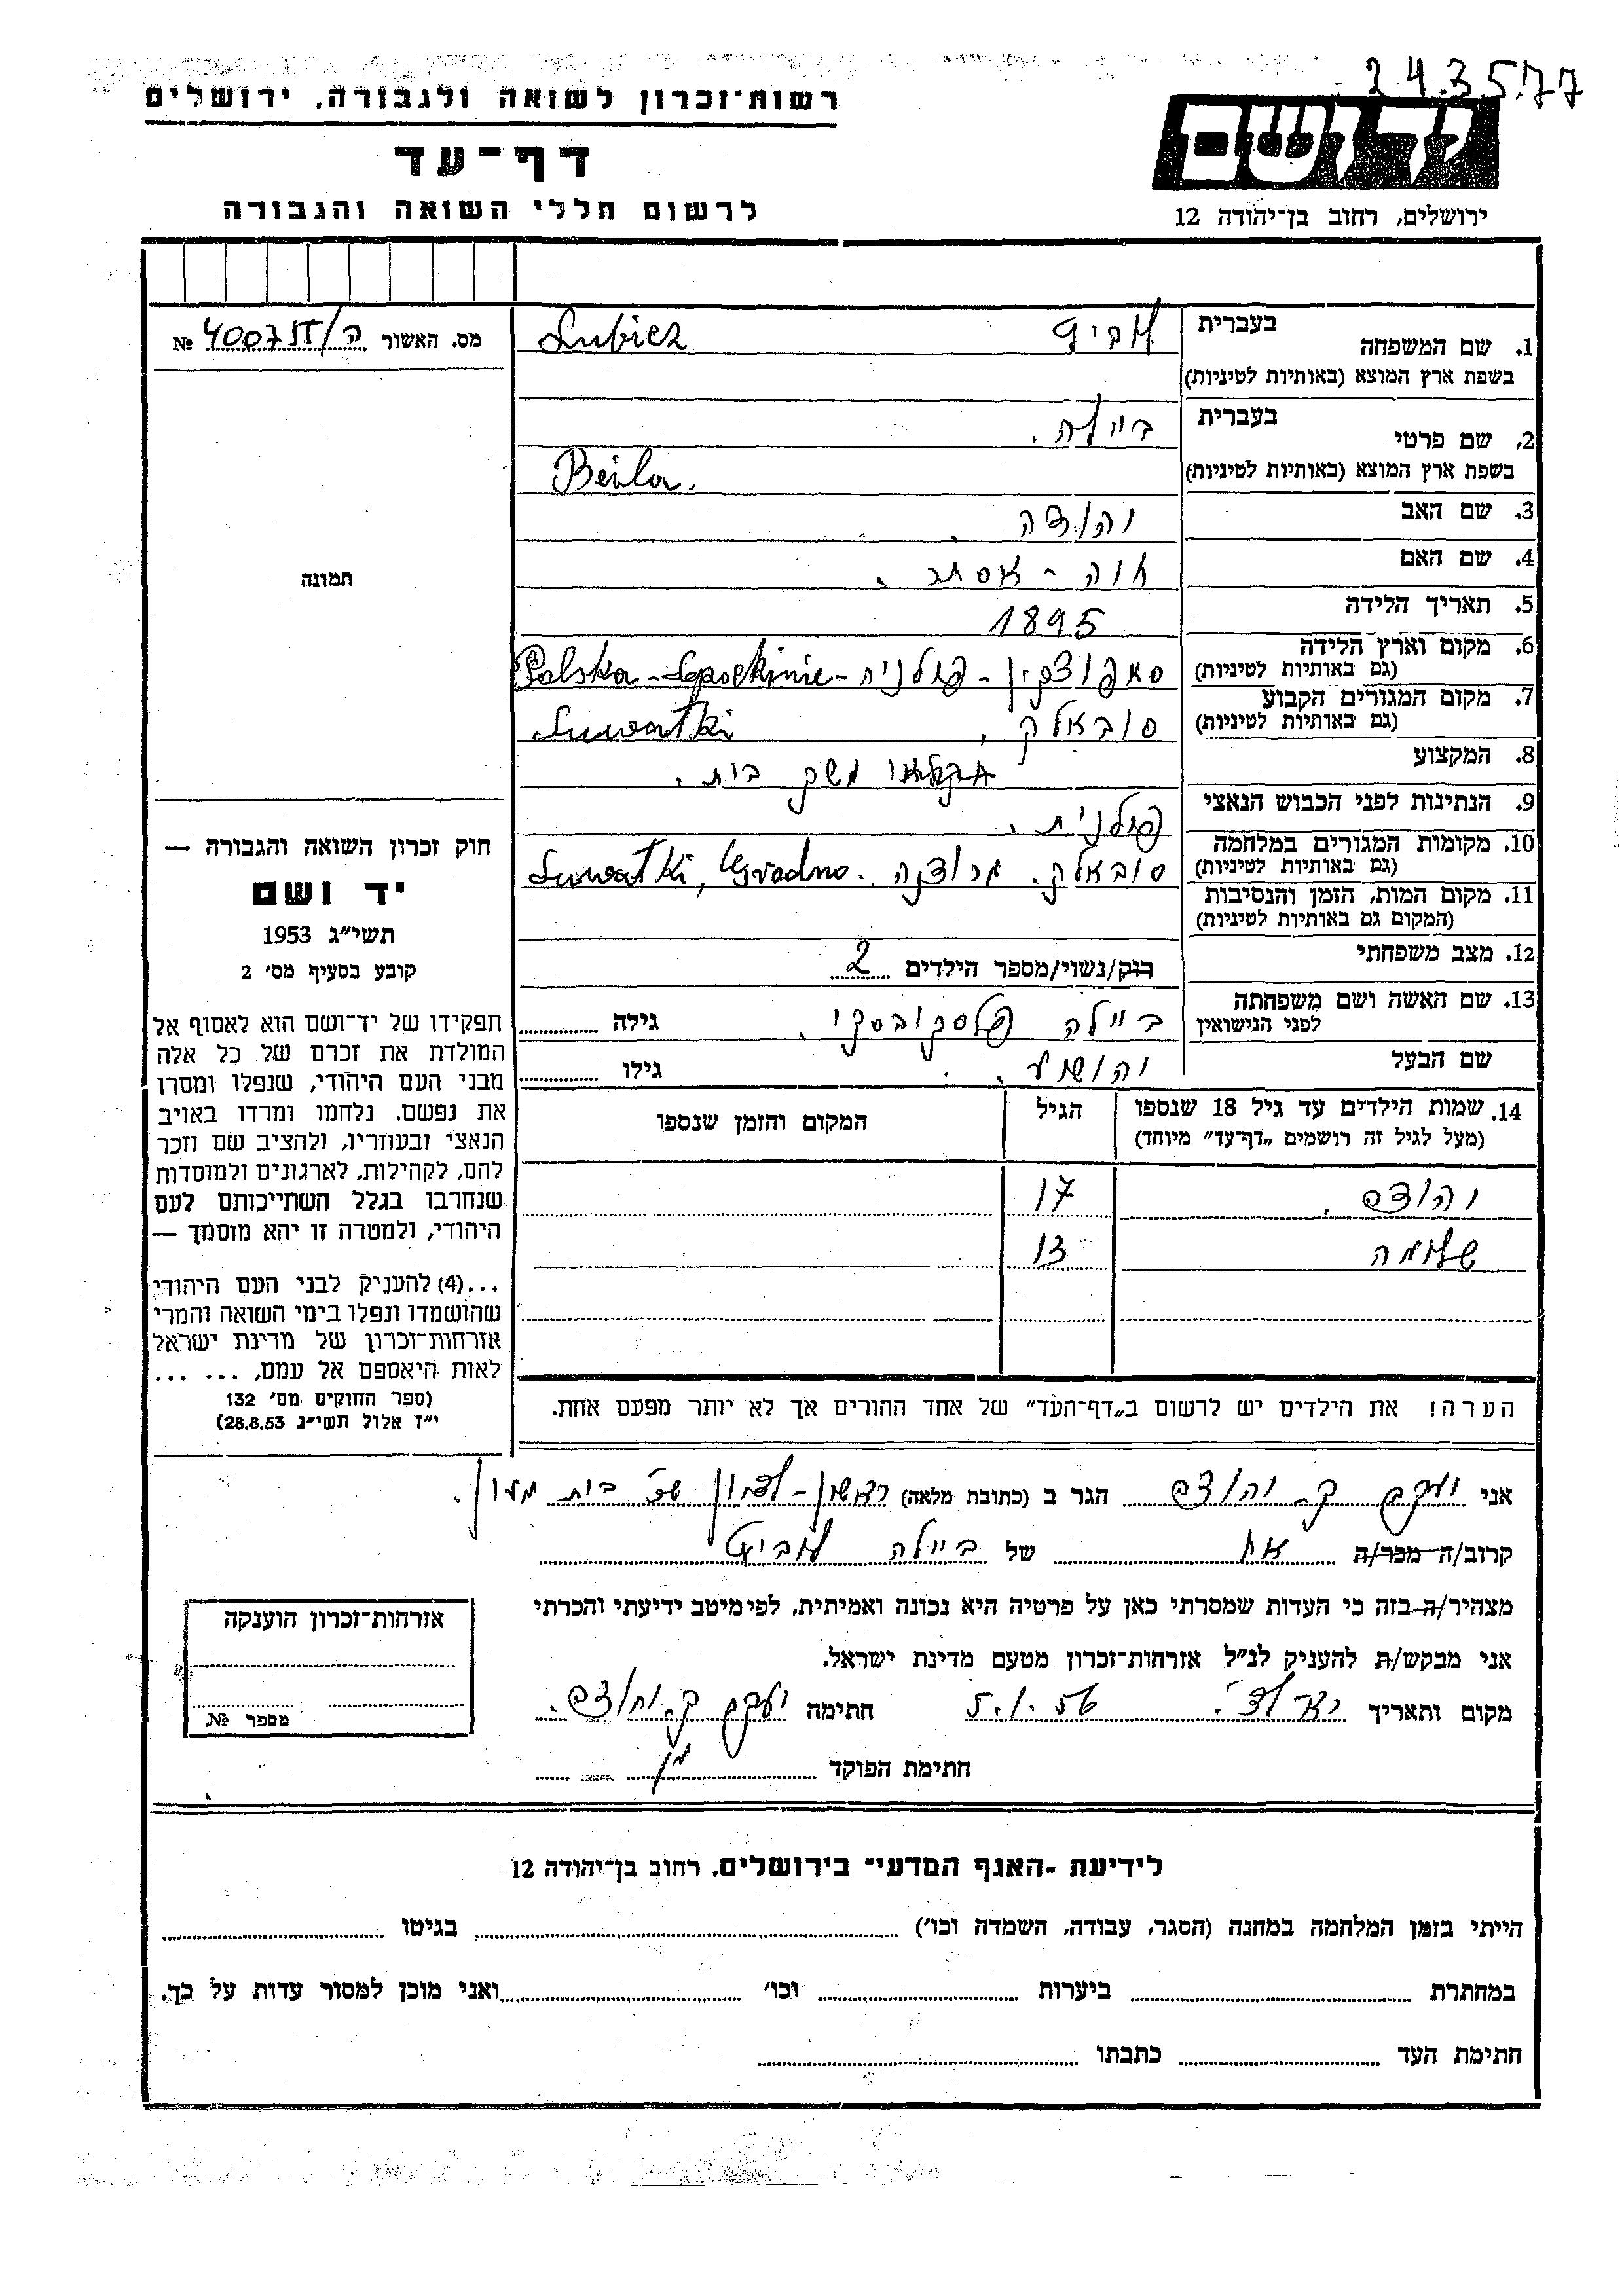 24.3.5.77
רשות־זכרון לשואה ולגבורה, ירושלים
דף־עד
לרשום חללי השואה והגבורה
יד ושם
ירושלים, רחוב בן־יהודה 12
מס. האשור № 4007
1. שם המשפחה
בעברית
בשפת ארץ המוצא (באותיות לטיניות)
Lubicz
2. שם פרטי
בעברית ביילה.
בשפת ארץ המוצא (באותיות לטיניות)
Beila.
3. שם האב יהודה
4. שם האם חוה - אסתר.
תמונה
5. תאריך הלידה 1895
6. מקום וארץ הלידה
(גם באותיות לטיניות) סאפוצקין - פולניה - Polska
7. מקום המגורים הקבוע
(גם באותיות לטיניות) סובאלק, Suwałki
8. המקצוע משק בית.
9. הנתינות לפני הכבוש הנאצי פולנית.
10. מקומות המגורים במלחמה
(גם באותיות לטיניות) סובאלק. גרודנה. Suwałki, Grodno.
11. מקום המות, הזמן והנסיבות
(המקום גם באותיות לטיניות)
12. מצב משפחתי רוק/נשוי/מספר הילדים 2
13. שם האשה ושם משפחתה
לפני הנישואין ביילה גילה
שם הבעל יהושע. גילו
14. שמות הילדים עד גיל 18 שנספו
(מעל לגיל זה רושמים „דף־עד” מיוחד)
הגיל
המקום והזמן שנספו
17
שלומה 13
הערה! את הילדים יש לרשום ב„דף־העד” של אחד ההורים אך לא יותר מפעם אחת.
חוק זכרון השואה והגבורה —
יד ושם
תשי״ג 1953
קובע בסעיף מס׳ 2
תפקידו של יד־ושם הוא לאסוף אל
המולדת את זכרם של כל אלה
מבני העם היהודי, שנפלו ומסרו
את נפשם. נלחמו ומרדו באויב
הנאצי ובעוזריו, ולהציב שם וזכר
להם, לקהילות, לארגונים ולמוסדות
שנחרבו בגלל השתייכותם לעם
היהודי, ולמטרה זו יהא מוסמך —
...(4) להעניק לבני העם היהודי
שהושמדו ונפלו בימי השואה והמרי
אזרחות־זכרון של מדינת ישראל
לאות היאספם אל עמם, ... ...
(ספר החוקים מס׳ 132
י״ז אלול תשי״ג 28.8.53)
אני יעקב הגר ב (כתובת מלאה) ראשון - לציון שכ׳ בית
קרוב/ה מכר/ה אח של ביילה
מצהיר/ה בזה כי העדות שמסרתי כאן על פרטיה היא נכונה ואמיתית, לפי מיטב ידיעתי והכרתי
אני מבקש/ת להעניק לנ״ל אזרחות־זכרון מטעם מדינת ישראל.
מקום ותאריך 5.1.56 חתימה יעקב
חתימת הפוקד
אזרחות־זכרון הוענקה
מספר №
לידיעת -האגף המדעי״ בירושלים, רחוב בן־יהודה 12
הייתי בזמן המלחמה במחנה (הסגר, עבודה, השמדה וכו׳) בגיטו
במחתרת ביערות וכו׳ ואני מוכן למסור עדות על כך.
חתימת העד כתבתו